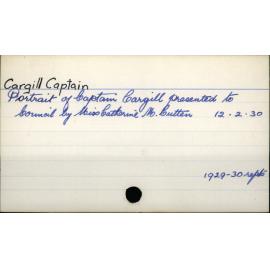 Cargill Captain
Portrait of Captain Cargill presented to
Council by Miss Catherine M. Cutten 12.2.30
1929-30 repts